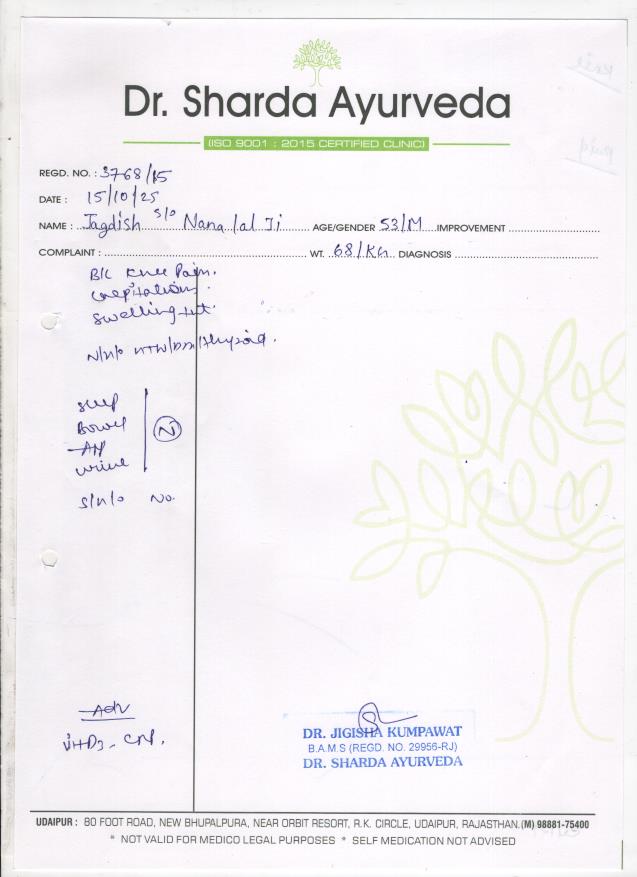 Dr. Sharda Ayurveda
(ISO 9001 : 2015 CERTIFIED CLINIC)
REGD. NO. : 3768/15
DATE : 15/10/25
NAME : Jagdish s/o Nana lal Ji AGE/GENDER 53/M IMPROVEMENT
COMPLAINT : WT. 68/KG DIAGNOSIS
B/L Knee Pain.
Crepitations.
Swelling
N/H/O HTN/DM/Thyroid.
Sleep
Bowel
App
Urine
N
S/H/O No.
Adv
DR. JIGISHA KUMPAWAT
B.A.M.S (REGD. NO. 29956-RJ)
DR. SHARDA AYURVEDA
UDAIPUR : 80 FOOT ROAD, NEW BHUPALPURA, NEAR ORBIT RESORT, R.K. CIRCLE, UDAIPUR, RAJASTHAN. (M) 98881-75400
* NOT VALID FOR MEDICO LEGAL PURPOSES * SELF MEDICATION NOT ADVISED